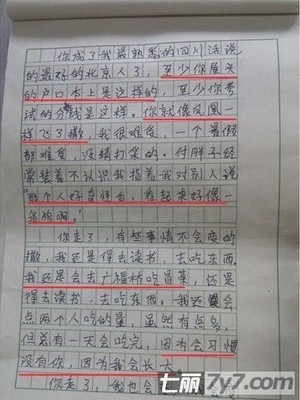 你成了我最熟悉的四川话说
的最好的北京人了，至少你屋头
的户口本上是这样的，至少你考
试的分钱是这样。你就像凤凰一
样飞了撒，我很难受，一个暑假
都难受，没精打采的。付胖子经
常装着不认识我指着我对别人说
“那个人好奇怪也，看起来好像一
条狗啊。”
你走了，有些事情不会变的
撒，我还是得去读书，去吃东西，
我还是会去广福桥吃冒菜，还是
得去读书，去吃东西。我还会
点两个人吃的量，虽然有点多，
但总有一天会吃完，因为会习惯
没有你，因为我会长大。
你走了，我也会
七丽7y7.com